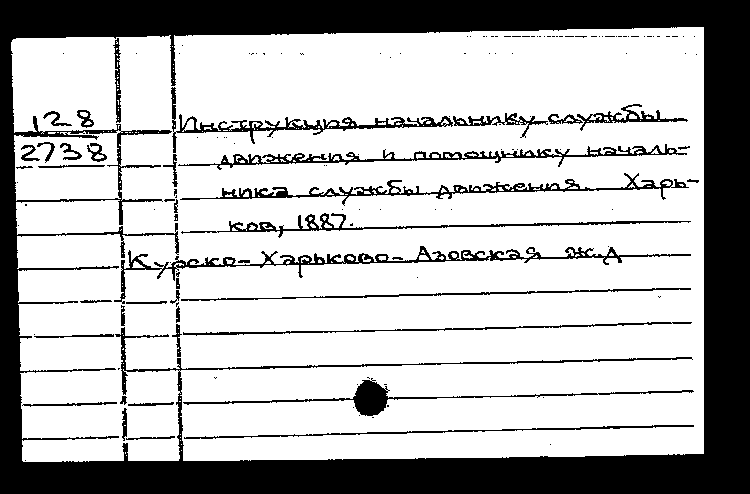 128 Инструкция начальнику службы
2738 движения и помощнику началь-
ника службы движения. Харь-
ков, 1887.
Курско-Харьково-Азовская ж.д